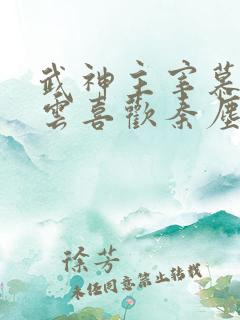 武神主宰慕
雲喜歡秦塵
徐芳
未经同意禁止转载